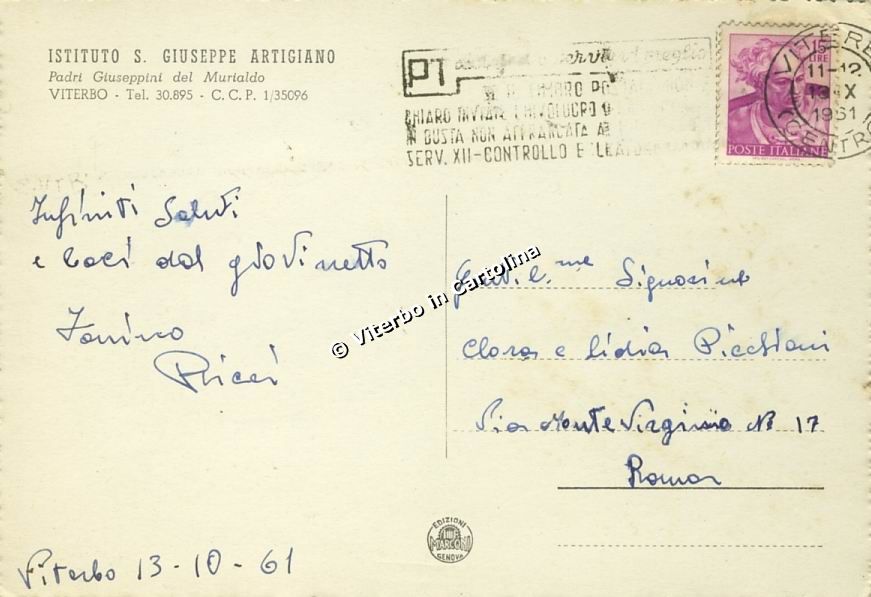 ISTITUTO S. GIUSEPPE ARTIGIANO
Padri Giuseppini del Murialdo
VITERBO - Tel. 30.895 - C. C. P. 1/35096
PT
IN BUSTA NON AFFRANCATA A
SERV. XII-CONTROLLO E
15 LIRE
POSTE ITALIANE
VITERBO
11-12
13 X
1961
CENTRO
Infiniti Saluti
e baci dal giovinetto
Tonino
Ricci
Gentil.me Signorine
Clara e Lidia Picchiani
Via Monte Virginio N° 17
Roma
© Viterbo in Cartolina
EDIZIONI
MARCONI
GENOVA
Viterbo 13-10-61